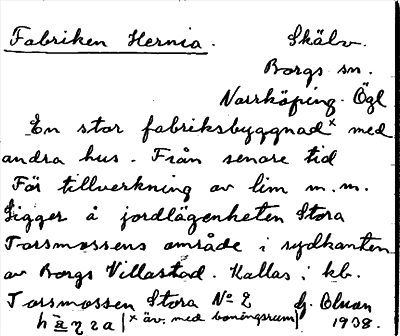 Fabriken Hernia. Skälv.
Borgs sn.
Norrköping. Ögl
En stor fabriksbyggnad x med
andra hus. Från senare tid
För tillverkning av lim m.m.
Ligger å jordlägenheten Stora
Torsmossens område i sydkanten
av Borgs Villastad. Kallas i kb.
Torsmossen Stora No 2 G. Olson
x äv. med boningsrum) 1938.